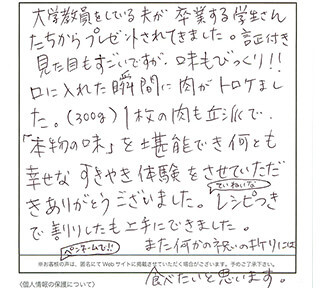 大学教員をしている夫が卒業する学生さん
たちからプレゼントされてきました。証付き
見た目もすごいですが、味もびっくり!!
口に入れた瞬間に肉がトロケまし
た。(300g) 1枚の肉も立派で、
「本物の味」を堪能でき何とも
幸せなすきやき体験をさせていただ
きありがとうございました。ていねいなレシピつき
で割りしたも上手にできました。
ペンネームで!!
また何かの祝いのオケリには
※お客様の声は、匿名にてWebサイトに掲載させていただく場合がございます。予めご了承下さい。
食べたいと思います。
〈個人情報の保護について〉